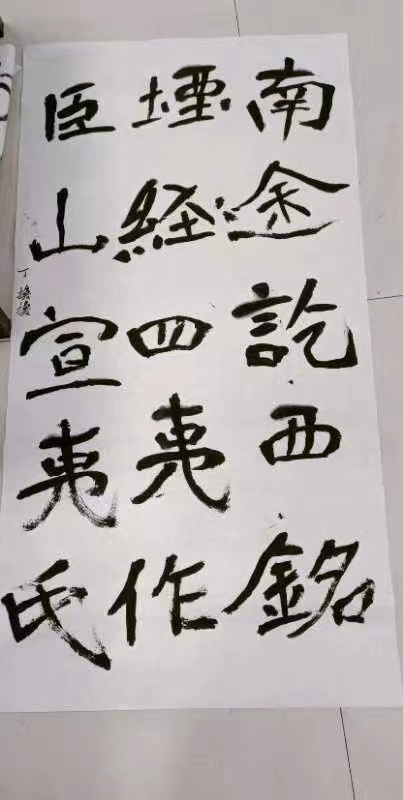 南途訖西銘
堙経四夷作
臣山宣夷氏
丁